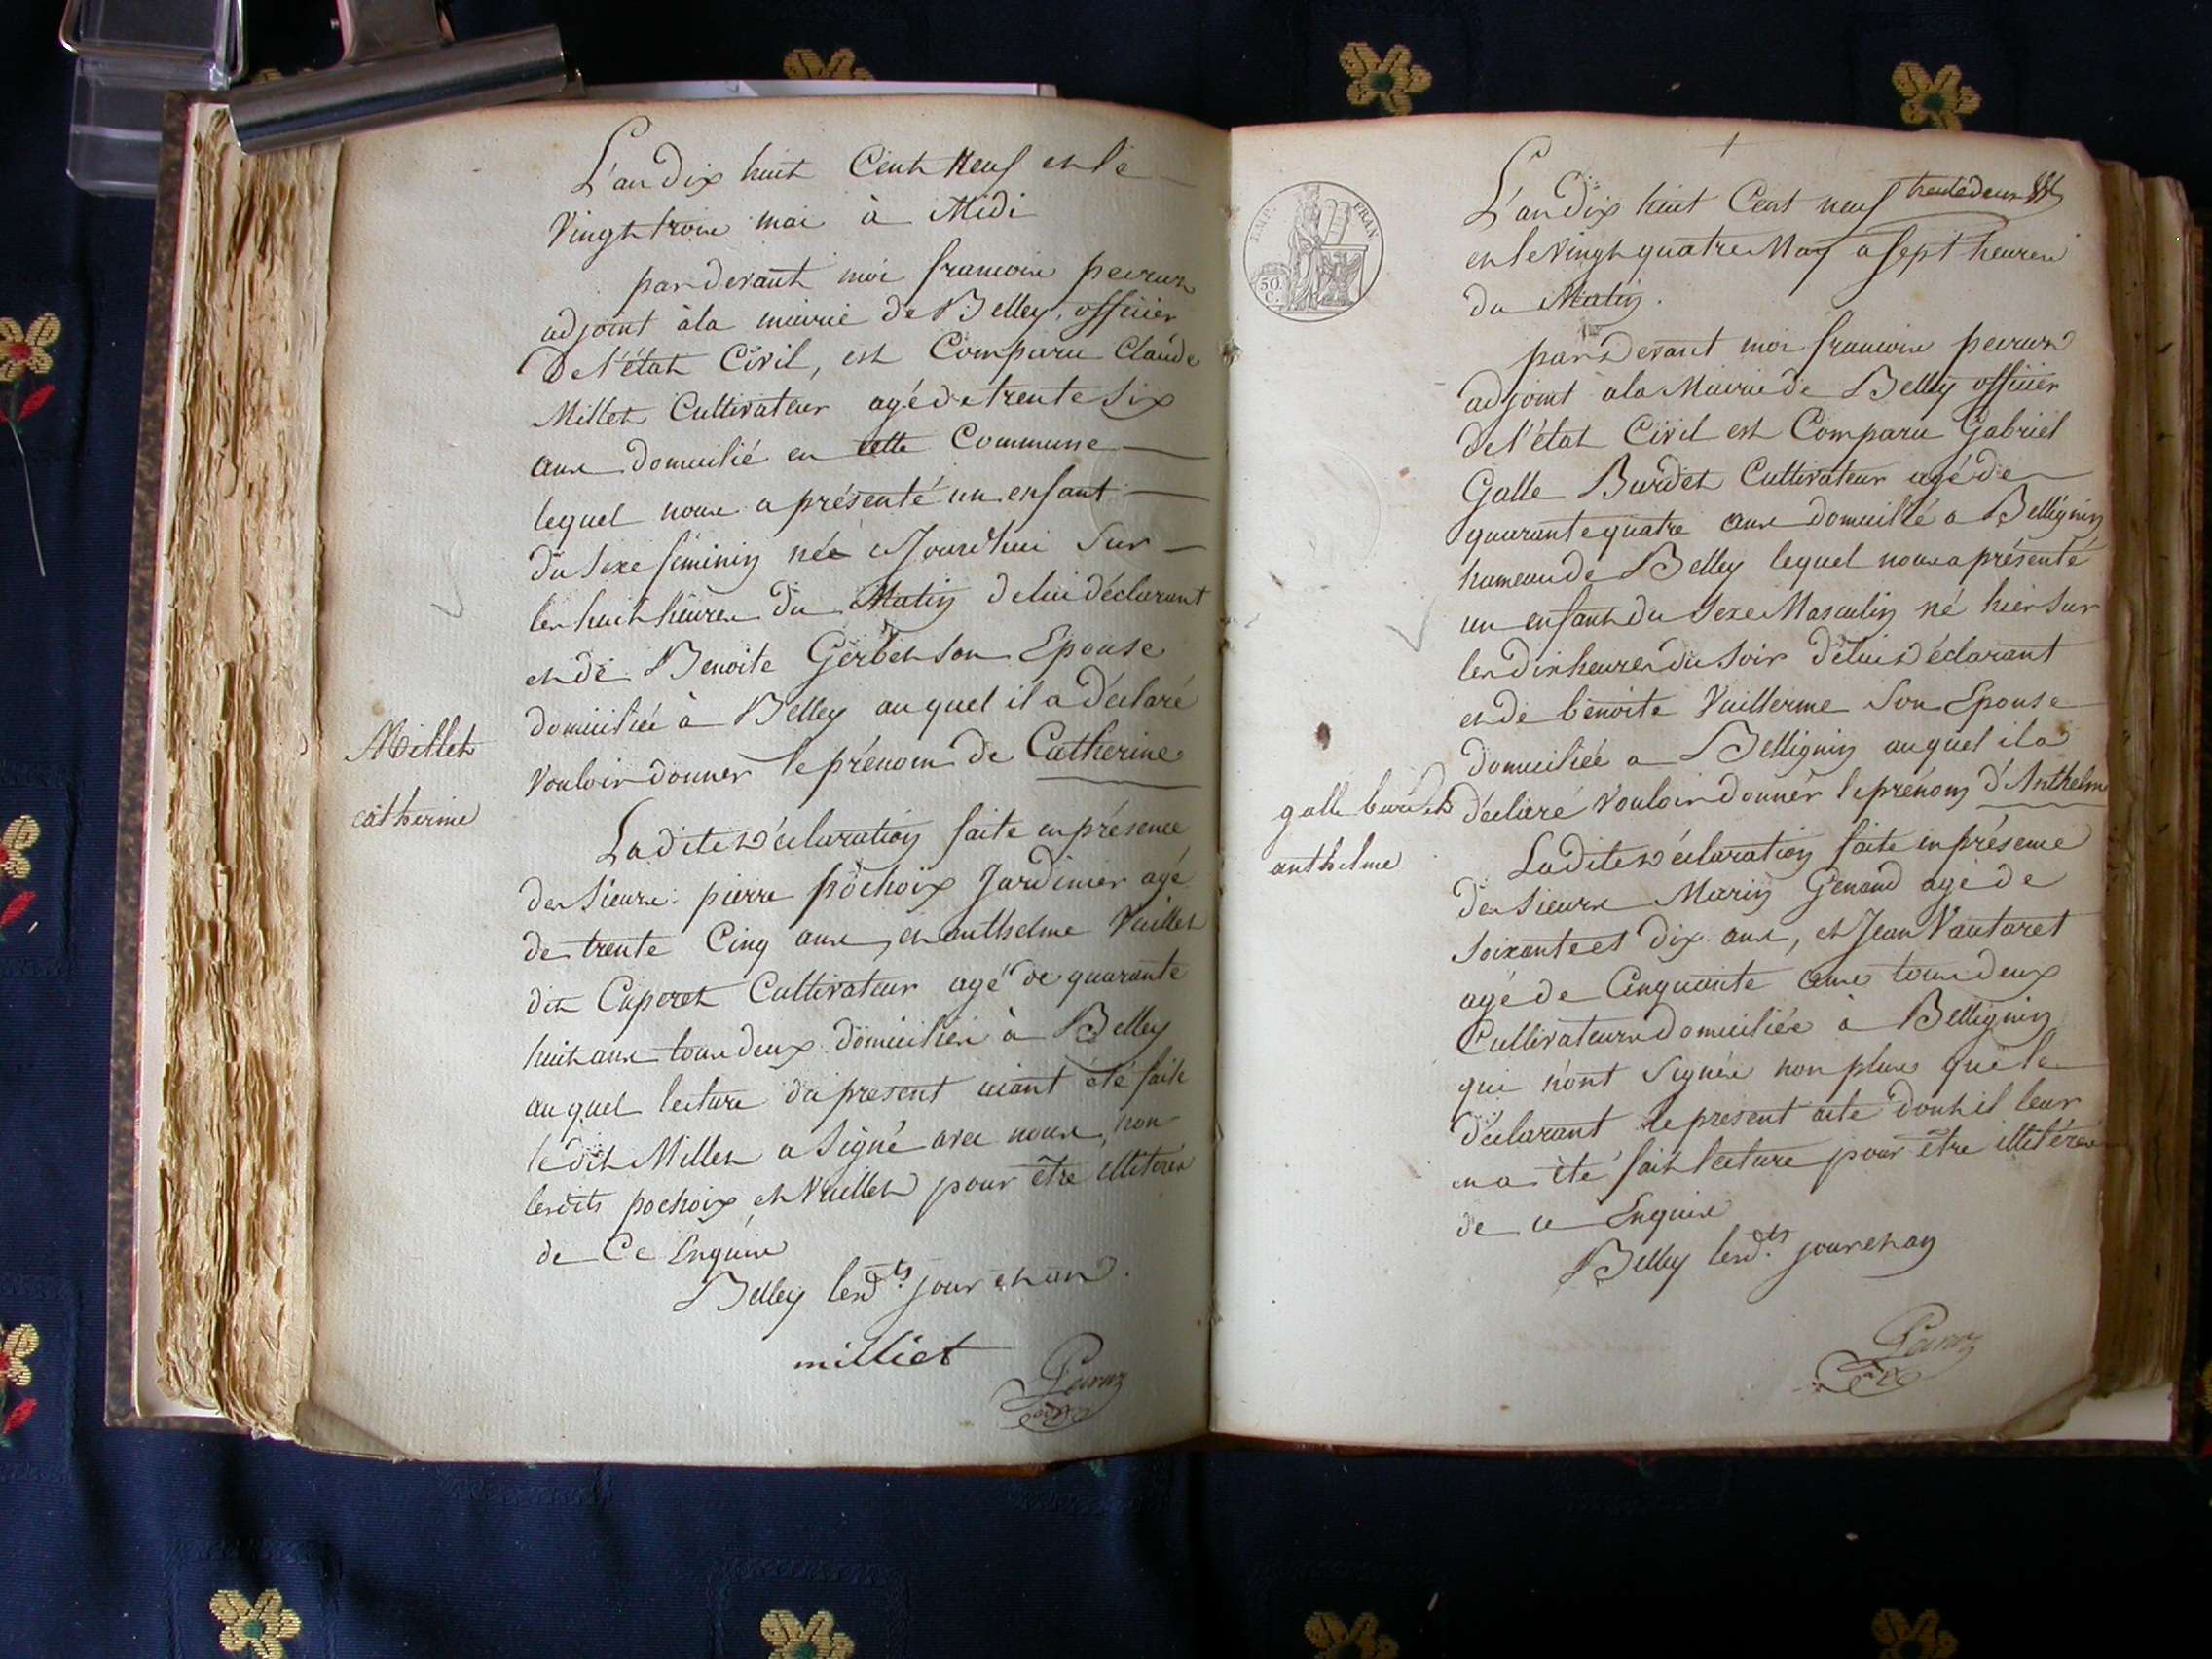 L'an dix huit Cent Neuf et le
Vingt trois mai à Midi
par devant moi francois peyron
adjoint à la mairie de Belley, officier
de l'état Civil, est Comparu Claude
Millet Cultivateur agé de trente Six
ans domicilié en cette Commune
lequel nous a présenté un enfant
du Sexe féminin née aujourd'hui Sur
les huit heures du Matin de lui déclarant
et de Benoite Gerbet son Epouse
domiciliée à Belley auquel il a déclaré
vouloir donner le prénom de Catherine
Millet
catherine
La dite déclaration faite en présence
des Sieurs pierre pochoix Jardinier agé
de trente Cinq ans, et anthelme Vuillet
dit Cuperet Cultivateur agé de quarante
huit ans tous deux domiciliés à Belley
auquel lecture du present aiant été faite
le dit Millet a Signé avec nous, non
lesdits pochoix et Vuillet pour être illiterés
de Ce Enquis
Belley lesd.ts jour et an.
milliet
L'an dix huit Cent neuf trente deux
et le Vingt quatre May a Sept heures
du Matin.
par devant moi francois peyron
adjoint à la Mairie de Belley officier
de l'état Civil est Comparu Gabriel
Galle Burdet Cultivateur agé de
quarante quatre ans domicilié a Bellignin
hameau de Belley lequel nous a présenté
un enfant du Sexe Masculin né hier Sur
les dix heures du Soir de lui déclarant
et de benoite Vuillerme Son Epouse
domiciliée a Bellignin auquel il a
déclaré vouloir donner le prénom d'Anthelme
galle burdet
anthelme
La dite déclaration faite en présence
des Sieurs Marin Genand agé de
Soixante et dix ans, et Jean Vautaret
agé de Cinquante ans tous deux
Cultivateurs domiciliés à Bellignin
qui n'ont Signés non plus que le
déclarant le present acte dont il leur
en a été fait lecture pour être illitérés
de ce Enquis
Belley lesd.ts jour et an
L'EMP. FRAN
50 C.